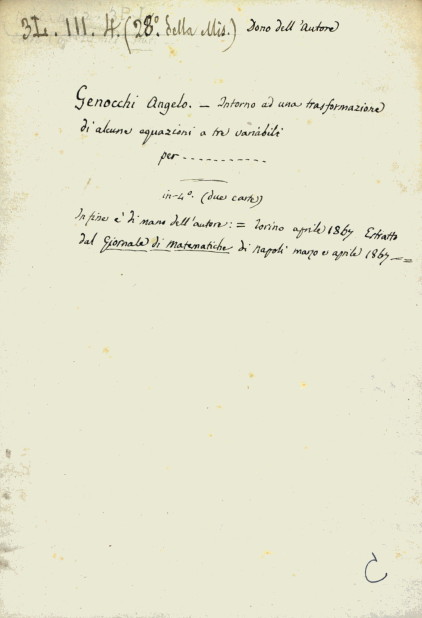 3L. III. 4. (28º. della Mis.) Dono dell'Autore
Genocchi Angelo. — Intorno ad una trasformazione
di alcune equazioni a tre variabili
per - - - - - - - - - - -
in-4º. (due carte)
In fine è di mano dell'autore: = Torino aprile 1867 Estratto
dal Giornale di Matematiche di Napoli marzo e aprile 1867 — =
C